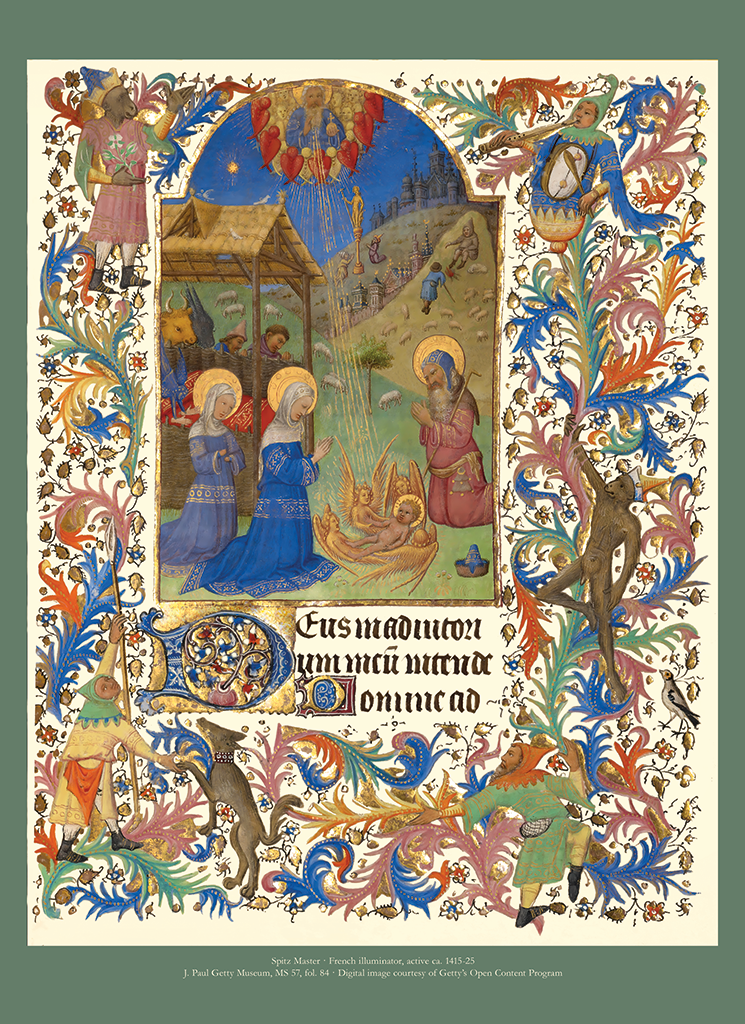 Deus in adiutori
um meū intende
Domine ad
Spitz Master · French illuminator, active ca. 1415-25
J. Paul Getty Museum, MS 57, fol. 84 · Digital image courtesy of Getty's Open Content Program